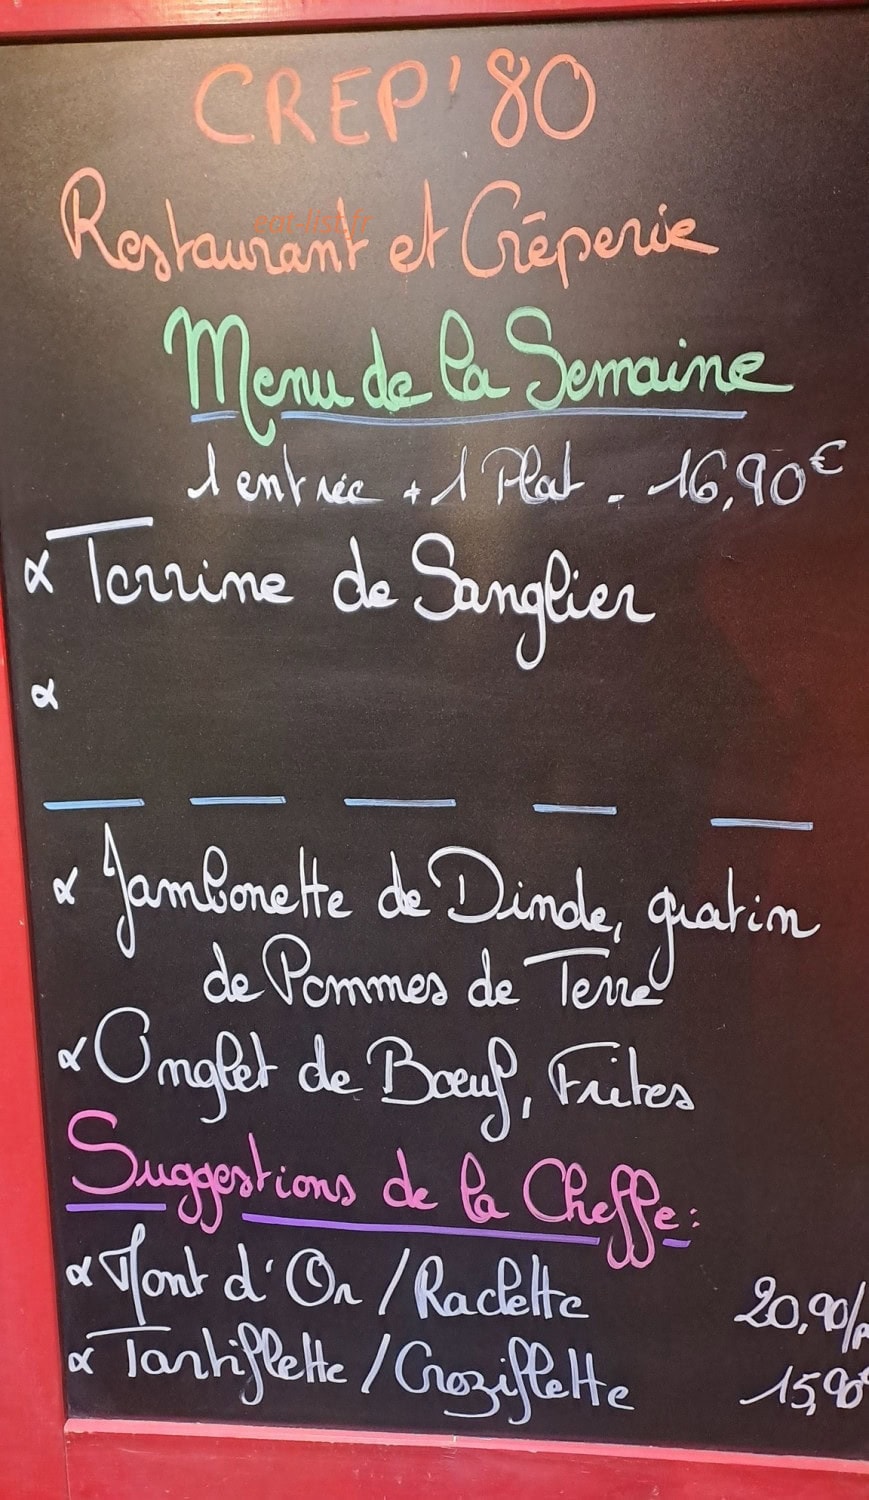 CREP'80
Restaurant et Crêperie
eat-list.fr
Menu de la Semaine
1 entrée + 1 Plat - 16,90€
Terrine de Sanglier
Jambonette de Dinde, gratin
de Pommes de Terre
Onglet de Bœuf, Frites
Suggestions de la Cheffe:
Mont d'Or / Raclette 20,90/p
Tartiflette / Croziflette 15,90€